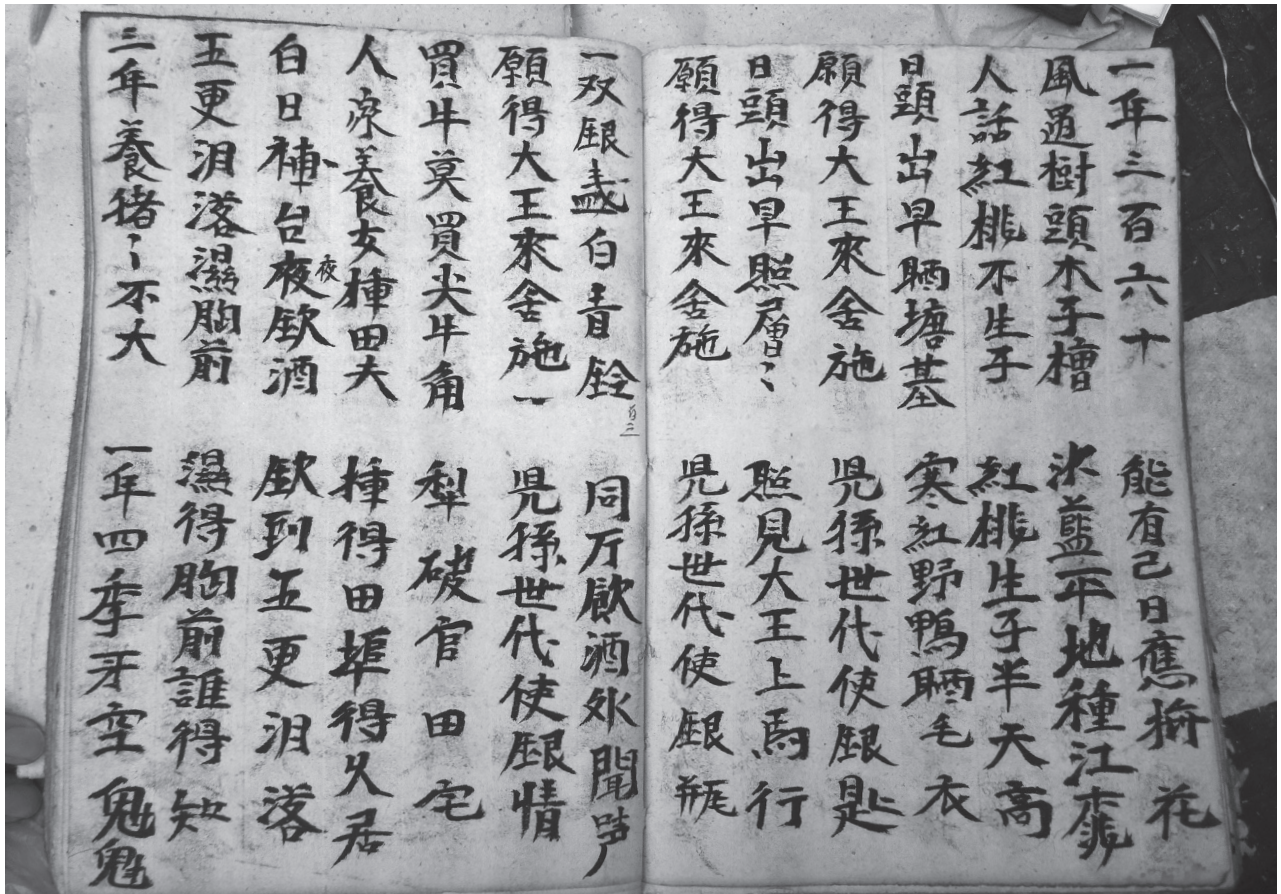 一年三百六十 能有己日應揄花
風過樹頭木子檜 氷藍平地種江
人話紅桃不生子 紅桃生子半天高
日頭出早晒塘基 寒紅野鴨晒毛衣
願得大王來舍施 児孫世代使銀匙
日頭出早照層〻 照見大王上馬行
願得大王來舍施 児孫世代使銀瓶
一双銀盞白 同斤飲酒外聞
願得大王來舍施一 児孫世代使銀情
買牛莫買尖牛角 犁破官田宅
人家養女揰田夫 揰得田埠得久居
白日補台夜夜飲酒 飲到五更泪落
五更泪落濕胸前 濕得胸前誰得知
三年養猪〻不大 一年四季牙空鬼鬼